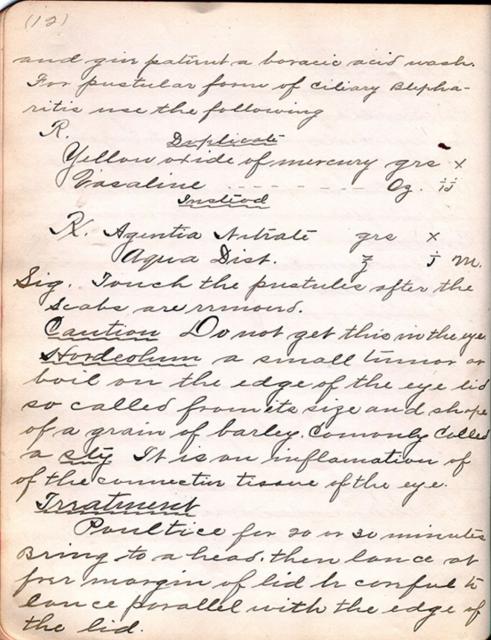 (12)
and give patient a boracic acid wash.
For pustular form of ciliary Blepha-
ritis use the following
R.
Duplicate
Yellow oxide of mercury grs x
Vasaline - - - - - - - - Oz. ij
Instead
Rx. Agentia Nitrate grs x
Aqua Dist. ℥ j m.
Sig. Touch the pustules after the
scabs are removed.
Caution Do not get this in the eye
Hordeolum a small tumor or
boil on the edge of the eye lid
so called from its size and shape
of a grain of barley. Comonly Called
a sty It is an inflamation of
of the connective tissue of the eye.
Treatment
Poultice for 20 or 30 minutes
Bring to a head, then lance at
free margin of lid be careful to
lance parallel with the edge of
the lid.